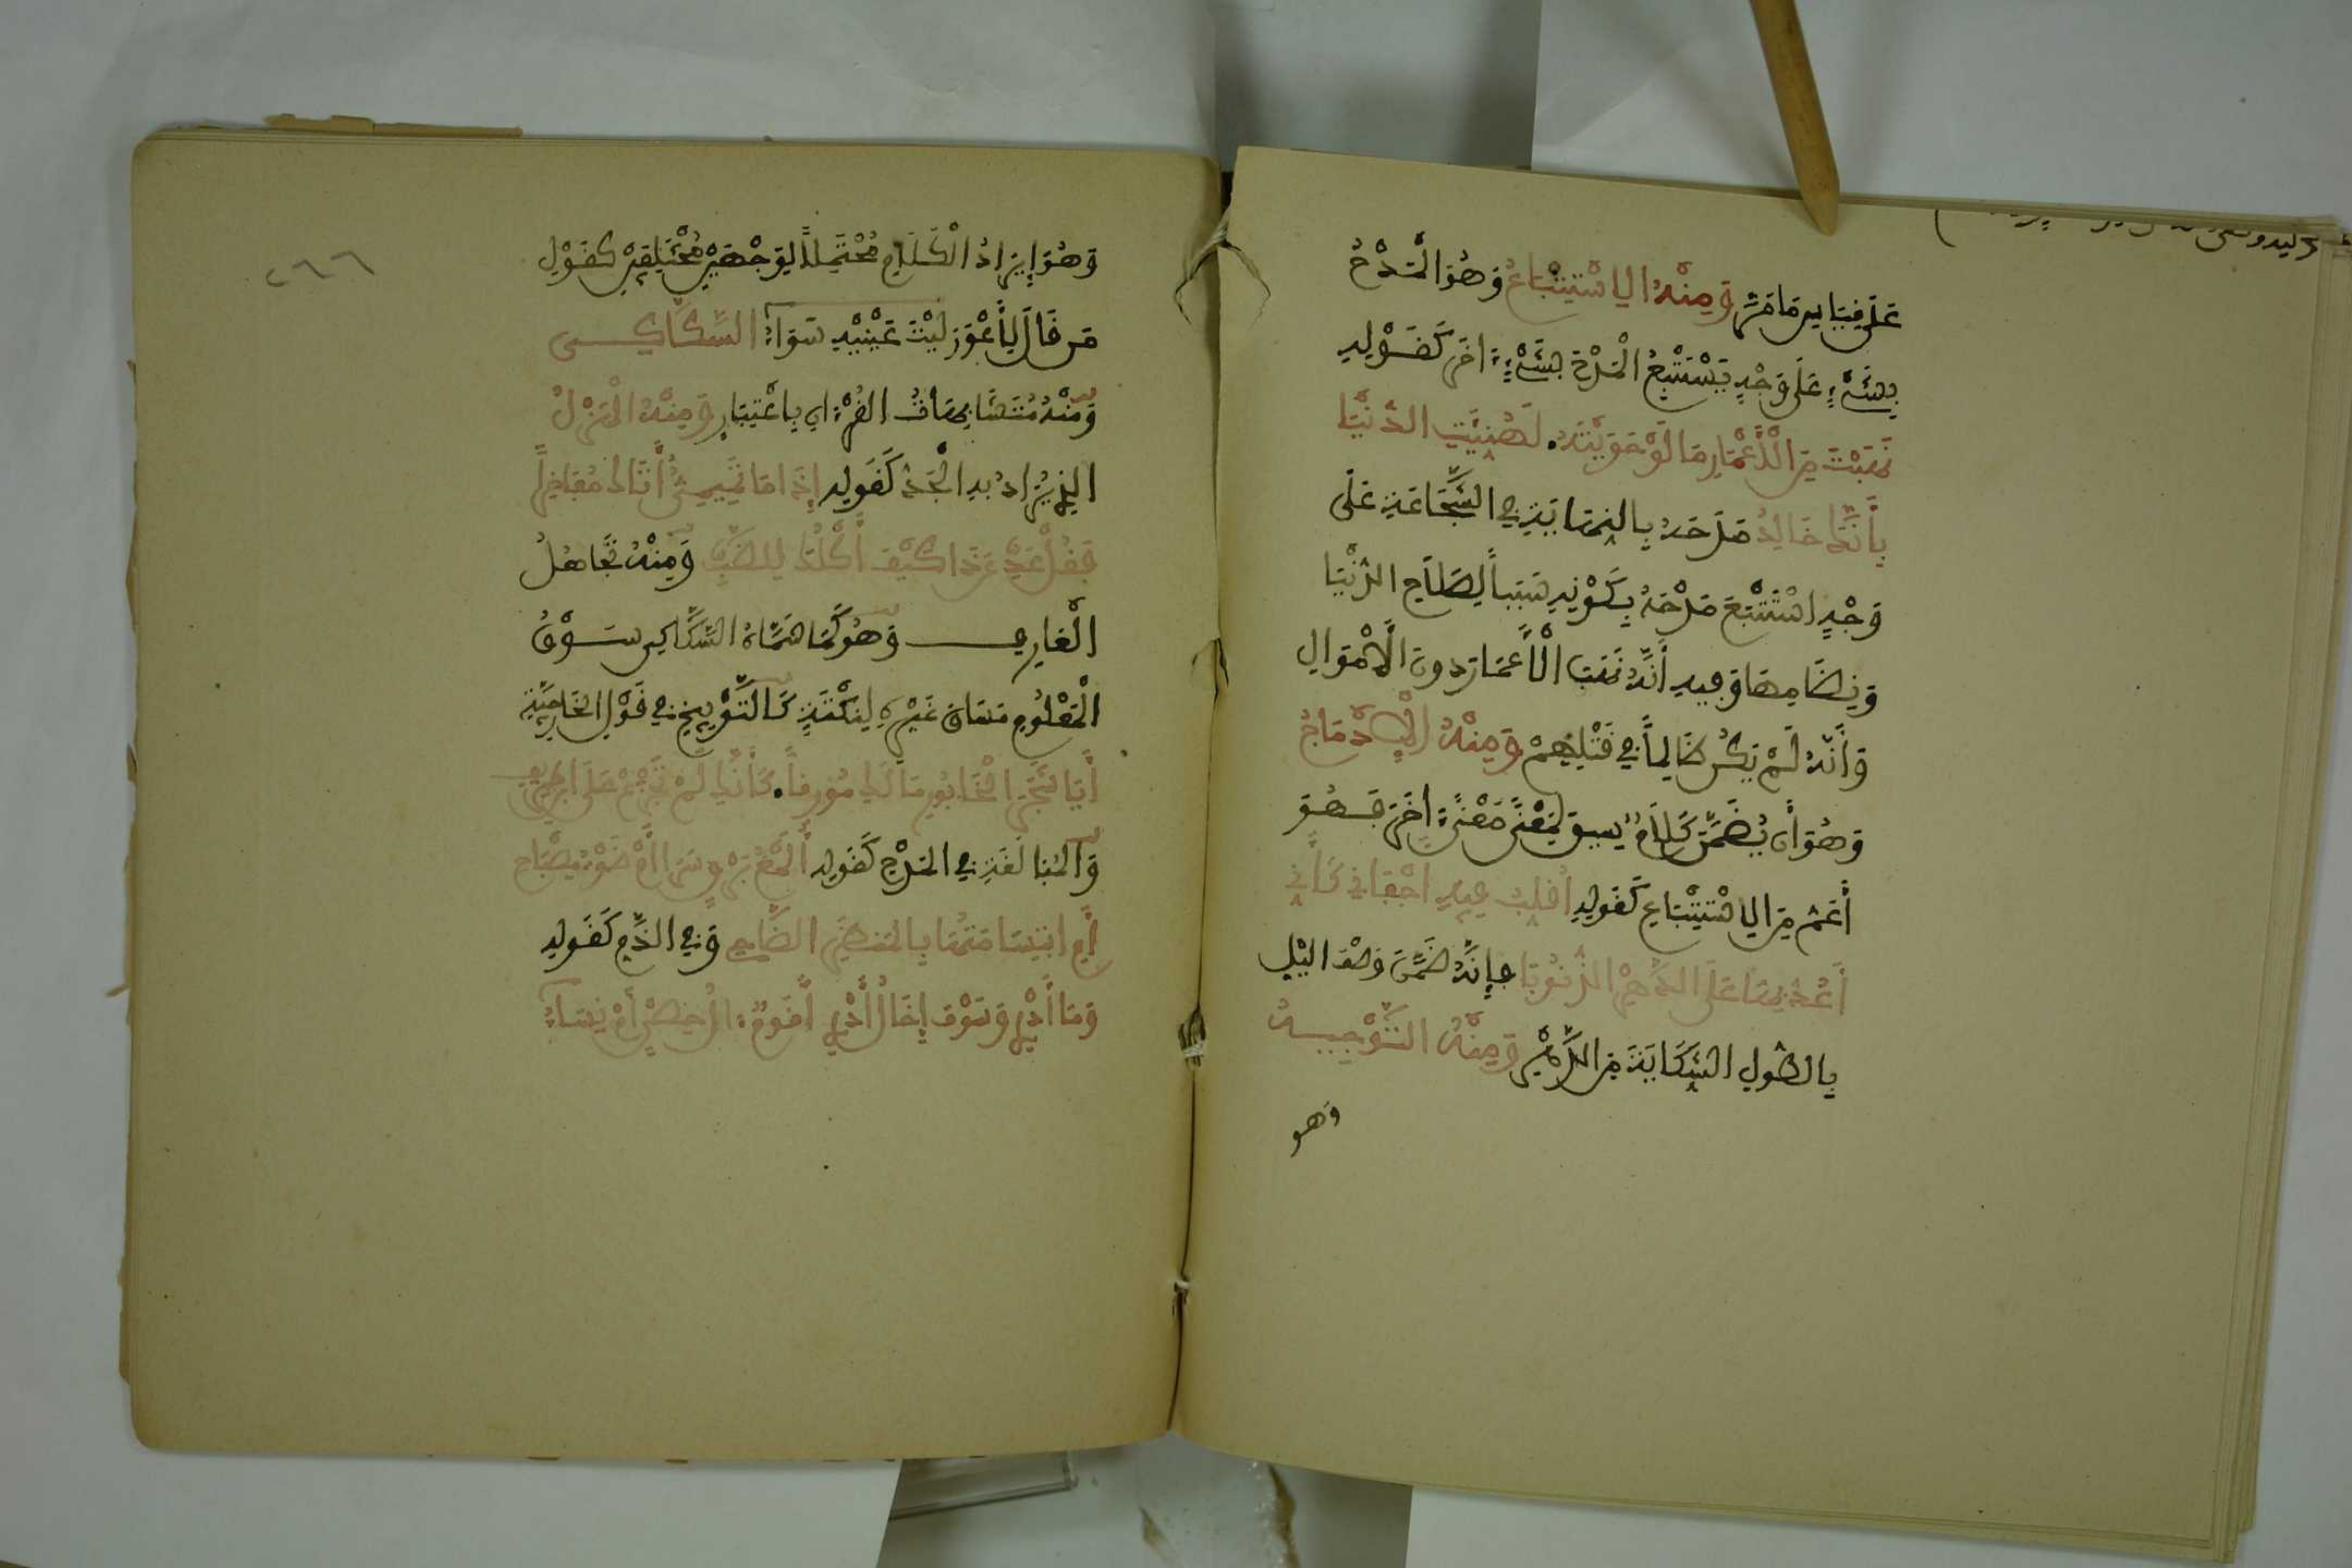 عَلَى قِيَاسِ مَا مَرَّ وَمِنْهُ الِاسْتِتْبَاعُ وَهُوَ الْمَدْحُ
بِشَيْءٍ عَلَى وَجْهٍ يَسْتَتْبِعُ الْمَدْحَ بِشَيْءٍ اخَرَ كَقَوْلِهِ
نَهَبْتَ مِنَ الْأَعْمَارِ مَا لَوْ حَوَيْتَهُ لَهُنِّيَتِ الدُّنْيَا
بِأَنَّكَ خَالِدُ مَدَحَهُ بِالنِّهَايَةِ فِي الشَّجَاعَةِ عَلَى
وَجْهٍ اسْتَتْبَعَ مَدْحَهُ بِكَوْنِهِ سَبَباً لِصَلَاحِ الدُّنْيَا
وَنِظَامِهَا وَفِيهِ أَنَّهُ نَهَبَ الْأَعْمَارَ دونَ الْأَمْوَالِ
وَأَنَّهُ لَمْ يَكُنْ ظَالِماً فِي قَتْلِهِمْ وَمِنْهُ الْإِدْمَاجُ
وَهُوَ أَن يُضَمَّنَ كَلَامٌ سِيقَ لِمَعْنًى مَعْنًى اخَرَ فَهُوَ
أَعَمُّ مِنَ الِاسْتِتْبَاعِ كَقَوْلِهِ أُقَلِّبُ فِيهِ أَجْفَانِي كَأَنِّي
أَعُدُّ بِهَا عَلَى الدَّهْرِ الذُّنُوبَا فَإِنَّهُ ضَمَّنَ وَصْفَ اليْلِ
بِالطُّولِ الشِّكَايَةَ مِنَ الدَّهْرِ وَمِنْهُ التَّوْجِيهُ
وهو
٢٦٦
وَهُوَ إِيرَادُ الْكَلَامِ مُحْتَمِلاً لِوَجْهَيْنِ مُخْتَلِفَيْنِ كَقَوْلِ
مَن قَالَ لِأَعْوَرَ لَيْتَ عَيْنَيْهِ سَوَاءٌ السَّكَّاكِي
وَمِنْهُ مُتَشَابِهَاتُ القُرْءَانِ بِاعْتِبَارٍ وَمِنْهُ الْهَزْلُ
الذِي يُرَادُ بِهِ الْجَدُّ كَقَوْلِهِ إِذَا مَا تَمِيمِيٌّ أَتَاكَ مُفَاخِراً
فَقُلْ عَدِّ عَن ذَا كَيْفَ أَكْلُكَ لِلضَّبِّ وَمِنْهُ تَجَاهُلُ
الْعَارِفِ وَهُوَ كَمَا سَمَّاهُ السَّكَّاكِي سَوْقُ
الْمَعْلُومِ مَسَاقَ غَيْرِهِ لِنُكْتَةٍ كَالتَّوْبِيخِ فِي قَوْلِ الخَارِجِيَّةِ
أَيَا شَجَرَ الْخَابُورِ مَا لَكَ مُورِقاً كَأَنَّكَ لَمْ تَجْزَعْ عَلَى ابْنِ طَرِيفِ
وَالمُبَالَغَةِ فِي المَدْحِ كَقَوْلِهِ أَلَمْعُ بَرْقٍ سَرَى أَمْ ضَوْءُ مِصْبَاحِ
أَمِ ابْتِسَامَتُهَا بِالمَنظَرِ الضَّاحِي وَفِي الذَّمِّ كَقَوْلِهِ
وَمَا أَدْرِي وَسَوْفَ إِخَالُ أَدْرِي أَقَوْمٌ آلُ حِصْنٍ أَمْ نِسَاءُ